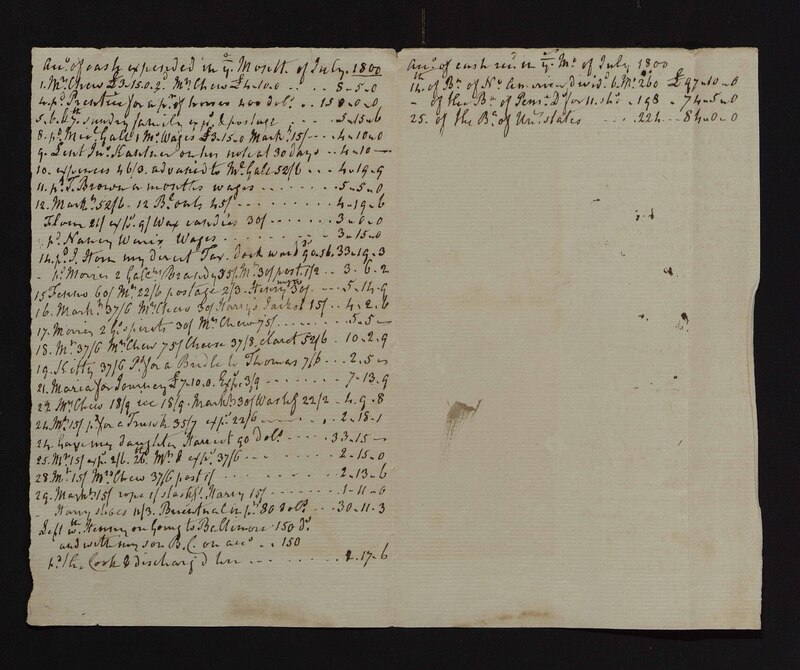 Acct. of cash expended in ye. Month of July. 1800
1. Mrs. Chew £3.15.0. 2d. Mrs. Chew £4.10.0 .. 8-5-0
4. pd. for a pr. of horses 400 dolrs. .. 150-0-0
5. & 6. 7th. Sundry family exps. & postage .. 5-15-6
8. pd. Gale 1 Mo. Wages £3.15.0 Markt. 15/ .. 4-10-0
9. Lent Jno. Kantner on his note at 30 days .. 4-10-
10. expences 46/3. advanced to Mr. Gale 52/6 .. 4-19-9
11. pd. T. Brown a months wages .. 5-5-0
12. Markt. 52/6. 12 Bs. oats 45/ .. 4-19-6
Flour 21/ exps. 9/ Wax candles 30/ .. 3-0-0
pd. Nancy Wages .. 3-15-0
14. pd. J. Horn my direct Tax. Dock ward 90.56. 33-19-3
- pd. Morris 2 Gals. Brandy 35/ Mt. 30/ post. 1/2 .. 3-6-2
15 60/ Mt. 22/6 postage 2/3. Henry 30/ .. 5-14-9
16. Markt. 37/6 Mrs. Chew 30/ Harry's Jacket 15/ .. 4-2-6
17. Morris 2 Gs. spirits 30/ Mrs. Chew 75/ .. 5-5-
18. Mt. 37/6 Mrs. Chew 75/ Cheese 37/8 claret 52/6 10-2-9
19. Kitty 37/6 Pd. for a Bridle to Thomas 7/6 .. 2-5-
21. Maria for Journey £7.10.0. Exps. 3/9 .. 7-13-9
22. Mrs. Chew 18/9 ice 18/9. Markt. 30/ Washg. 22/2 .. 4-9-8
24. Mt. 15/ pd. for a Trunk 35/7 exps. 22/6 .. 2-18-1
24. Gave my daughter Harriot 90 dolrs. .. 33-15-
25. Mt. 15/ exps. 2/6. 26. Mt. & exps. 37/6 .. 2-15-0
28. Mt. 15/ Mrs. Chew 37/6 post 1/ .. 2-13-6
29. Markt. 15/ rope 1/ Harry 15/ .. 1-11-0
Harry shoes 11/3. in ps. 80 dolrs. .. 30-11-3
Left wth. Henry on going to Baltimore 150 Ds.
and with my son B.C. on acct. .. 150
pd. the Cook & discharg'd her .. 2-17-6
Acct. of cash recd. in ye. Mo. of July 1800
14th. of Bk. of No. America divids. 6. Mos. 260 £97-10-0
- of the Bk. of Pensa. Do. for 11. shs. 198 - 74-5-0
25. of the Bk. of Untd. states .. 224 - 84-0-0